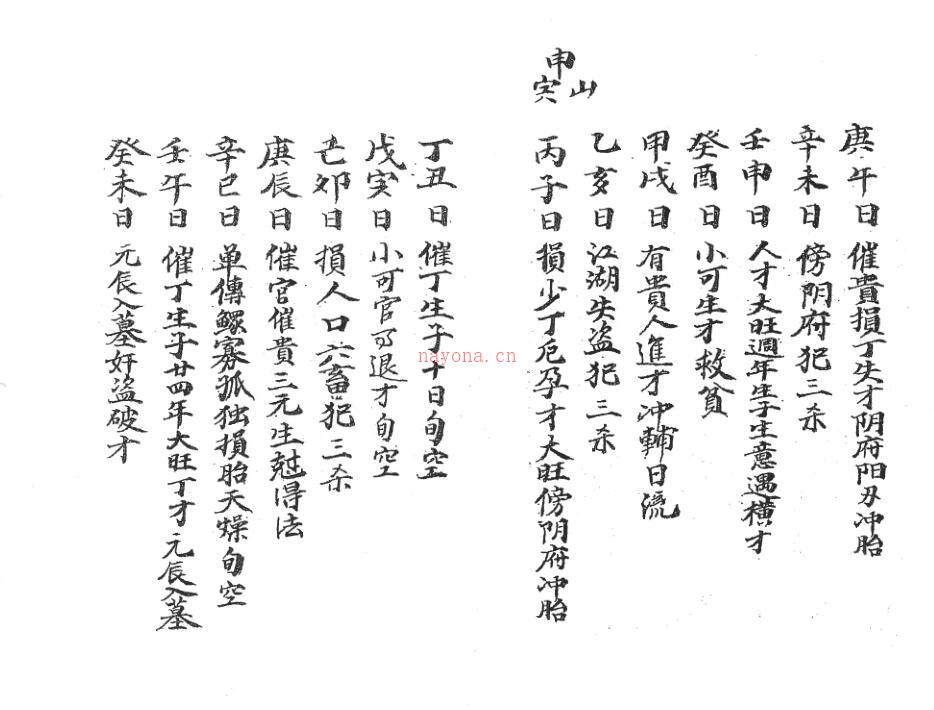 庚午日 催貴損丁失才阴府阳刃冲胎
辛未日 傍阴府犯三杀
壬申日 人才大旺週年生子生意遇横才
癸酉日 小可生才救貧
甲戌日 有貴人進才冲輔日流
乙亥日 江湖失盗犯三杀
丙子日 損少丁厄孕才大旺傍阴府冲胎
申山
寅
丁丑日 催丁生子十日旬空
戊寅日 小可官司退才旬空
己卯日 損人口六畜犯三杀
庚辰日 催官催貴三元生尅得法
辛巳日 单傳鳏寡孤独損胎天燥旬空
壬午日 催丁生子廿四年大旺丁才元辰入墓
癸未日 元辰入墓奸盗破才
nayona.cn